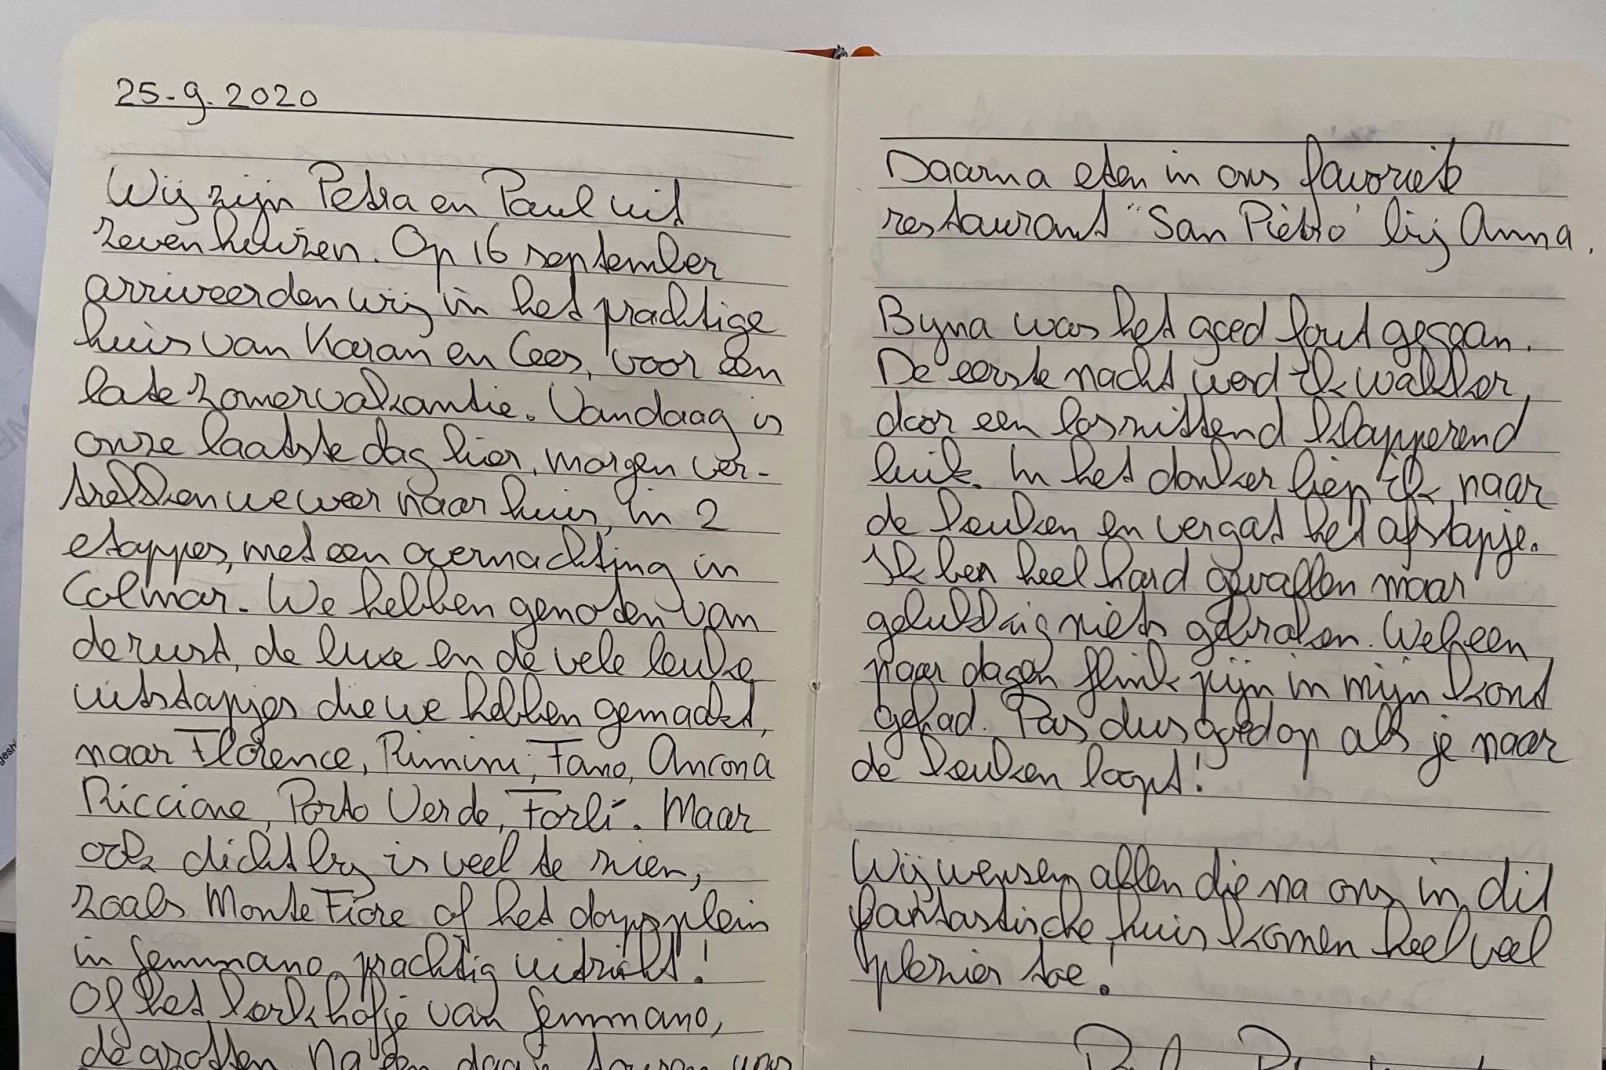 25-9-2020
Wij zijn Petra en Paul uit
Zevenhuizen. Op 16 september
arriveerden wij in het prachtige
huis van Karan en Cees, voor een
late zomervakantie. Vandaag is
onze laatste dag hier, morgen ver-
trekken we weer naar huis, in 2
etappes, met een overnachting in
Colmar. We hebben genoten van
de rust, de luxe en de vele leuke
uitstapjes die we hebben gemaakt,
naar Florence, Rimini, Fano, Ancona
Riccione, Porto Verde, Forlí. Maar
ook dichtby is veel te zien,
zoals Monte Fiore of het dorpsplein
in Gemmano, prachtig uitzicht!
Of het kerkhofje van Gemmano,
de grotten. Na een dagje
Daarna eten in ons favoriete
restaurant "San Pietro" bij Anna.
Byna was het goed fout gegaan.
De eerste nacht werd ik wakker
door een loszittend klapperend
luik. In het donker liep ik naar
de keuken en vergat het afstapje.
Ik ben heel hard gevallen maar
gelukkig niets gebroken. Wel een
paar dagen flink pijn in mijn kont
gehad. Pas dus goed op als je naar
de keuken loopt!
Wij wensen allen die na ons in dit
fantastische huis komen heel veel
plezier toe!